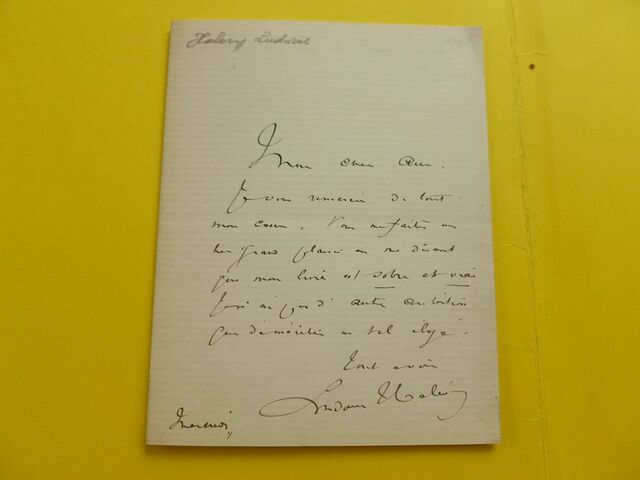 Halevy Ludovic
Mon cher ami.
Je vous remercie de tout
mon coeur. Vous me faites un
tres grand plaisir en me disant
que mon livre est sobre et vrai
Je n'ai pas d'autre ambition
que de mériter un tel éloge.
Tout à vous
Ludovic Halévy
Mercredi